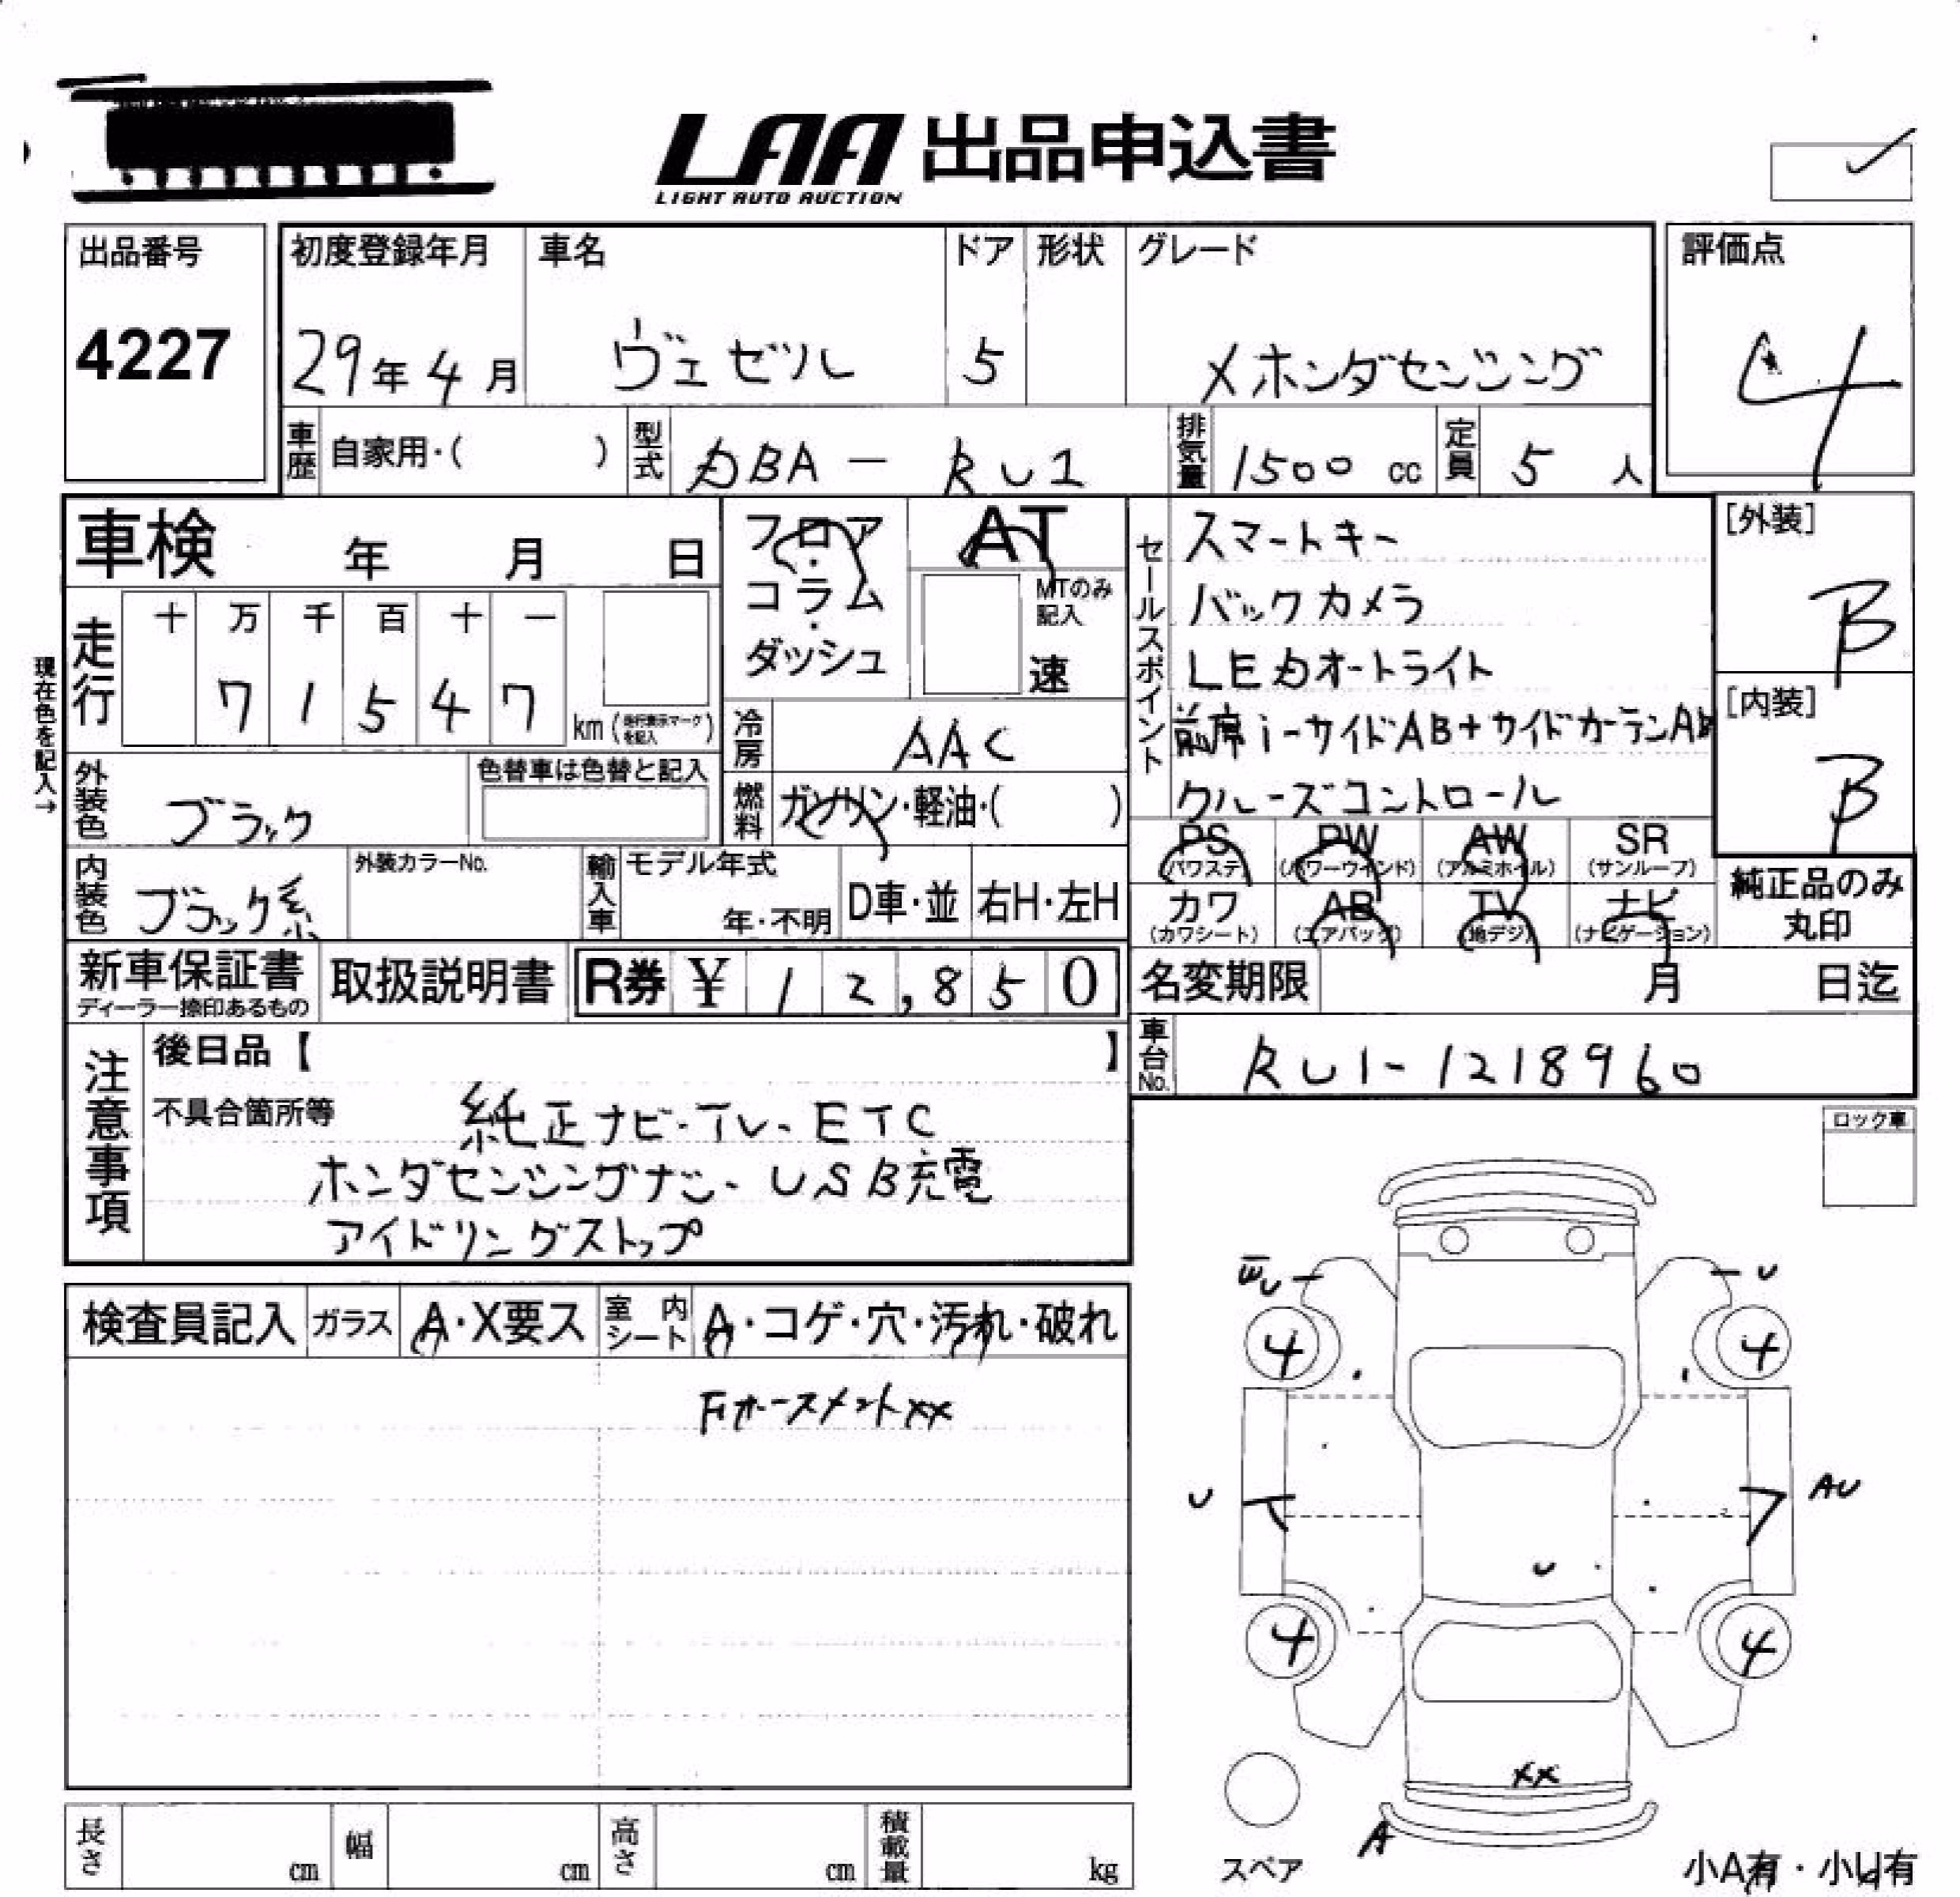 LAA 出品申込書
LIGHT AUTO AUCTION
出品番号
4227
初度登録年月
29年4月
車名
ヴェゼル
ドア
5
形状
グレード
Xホンダセンシング
評価点
4
車歴 自家用・( )
型式 DBA - RU1
排気量 1500 cc
定員 5 人
車検 年 月 日
フロア・コラム・ダッシュ
AT
MTのみ記入
速
現在色を記入→
走行
十 万 千 百 十 一
7 1 5 4 7
km (走行表示マークを記入)
冷房 AAC
燃料 ガソリン・軽油・( )
外装色 ブラック
色替車は色替と記入
内装色 ブラック系
外装カラーNo.
輸入車
モデル年式
年・不明
D車・並
右H・左H
セールスポイント
スマートキー
バックカメラ
LEDオートライト
前席i-サイドAB+サイドカーテンAB
クルーズコントロール
[外装]
B
[内装]
B
PS (パワステ)
PW (パワーウインド)
AW (アルミホイル)
SR (サンルーフ)
カワ (カワシート)
AB (エアバッグ)
TV (地デジ)
ナビ (ナビゲーション)
純正品のみ丸印
新車保証書
ディーラー捺印あるもの
取扱説明書
R券 ¥ 12,850
名変期限 月 日迄
車台No. RU1-1218960
注意事項
後日品【 】
不具合箇所等
純正ナビ・TV・ETC
ホンダセンシングナシ・USB充電
アイドリングストップ
ロック車
検査員記入
ガラス A・X要ス
室内シート A・コゲ・穴・汚れ・破れ
Fホースメントxx
U
4 4
U AU
U
4 4
XX
A
スペア
小A有・小U有
長さ cm
幅 cm
高さ cm
積載量 kg